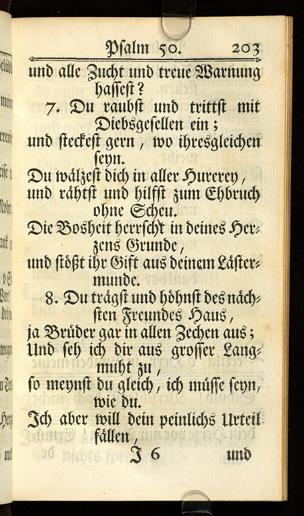 Psalm 50. 203
und alle Zucht und treue Warnung
hassest?
7. Du raubst und trittst mit
Diebsgesellen ein;
und steckest gern, wo ihresgleichen
seyn.
Du wälzest dich in aller Hurerey,
und rähtst und hilfst zum Ehbruch
ohne Scheu.
Die Bosheit herrscht in deines Her-
zens Grunde,
und stößt ihr Gift aus deinem Läster-
munde.
8. Du trägst und höhnst des näch-
sten Freundes Haus,
ja Brüder gar in allen Zechen aus;
Und seh ich dir aus grosser Lang-
muht zu,
so meynst du gleich, ich müsse seyn,
wie du.
Ich aber will dein peinlichs Urteil
fällen,
J 6 und